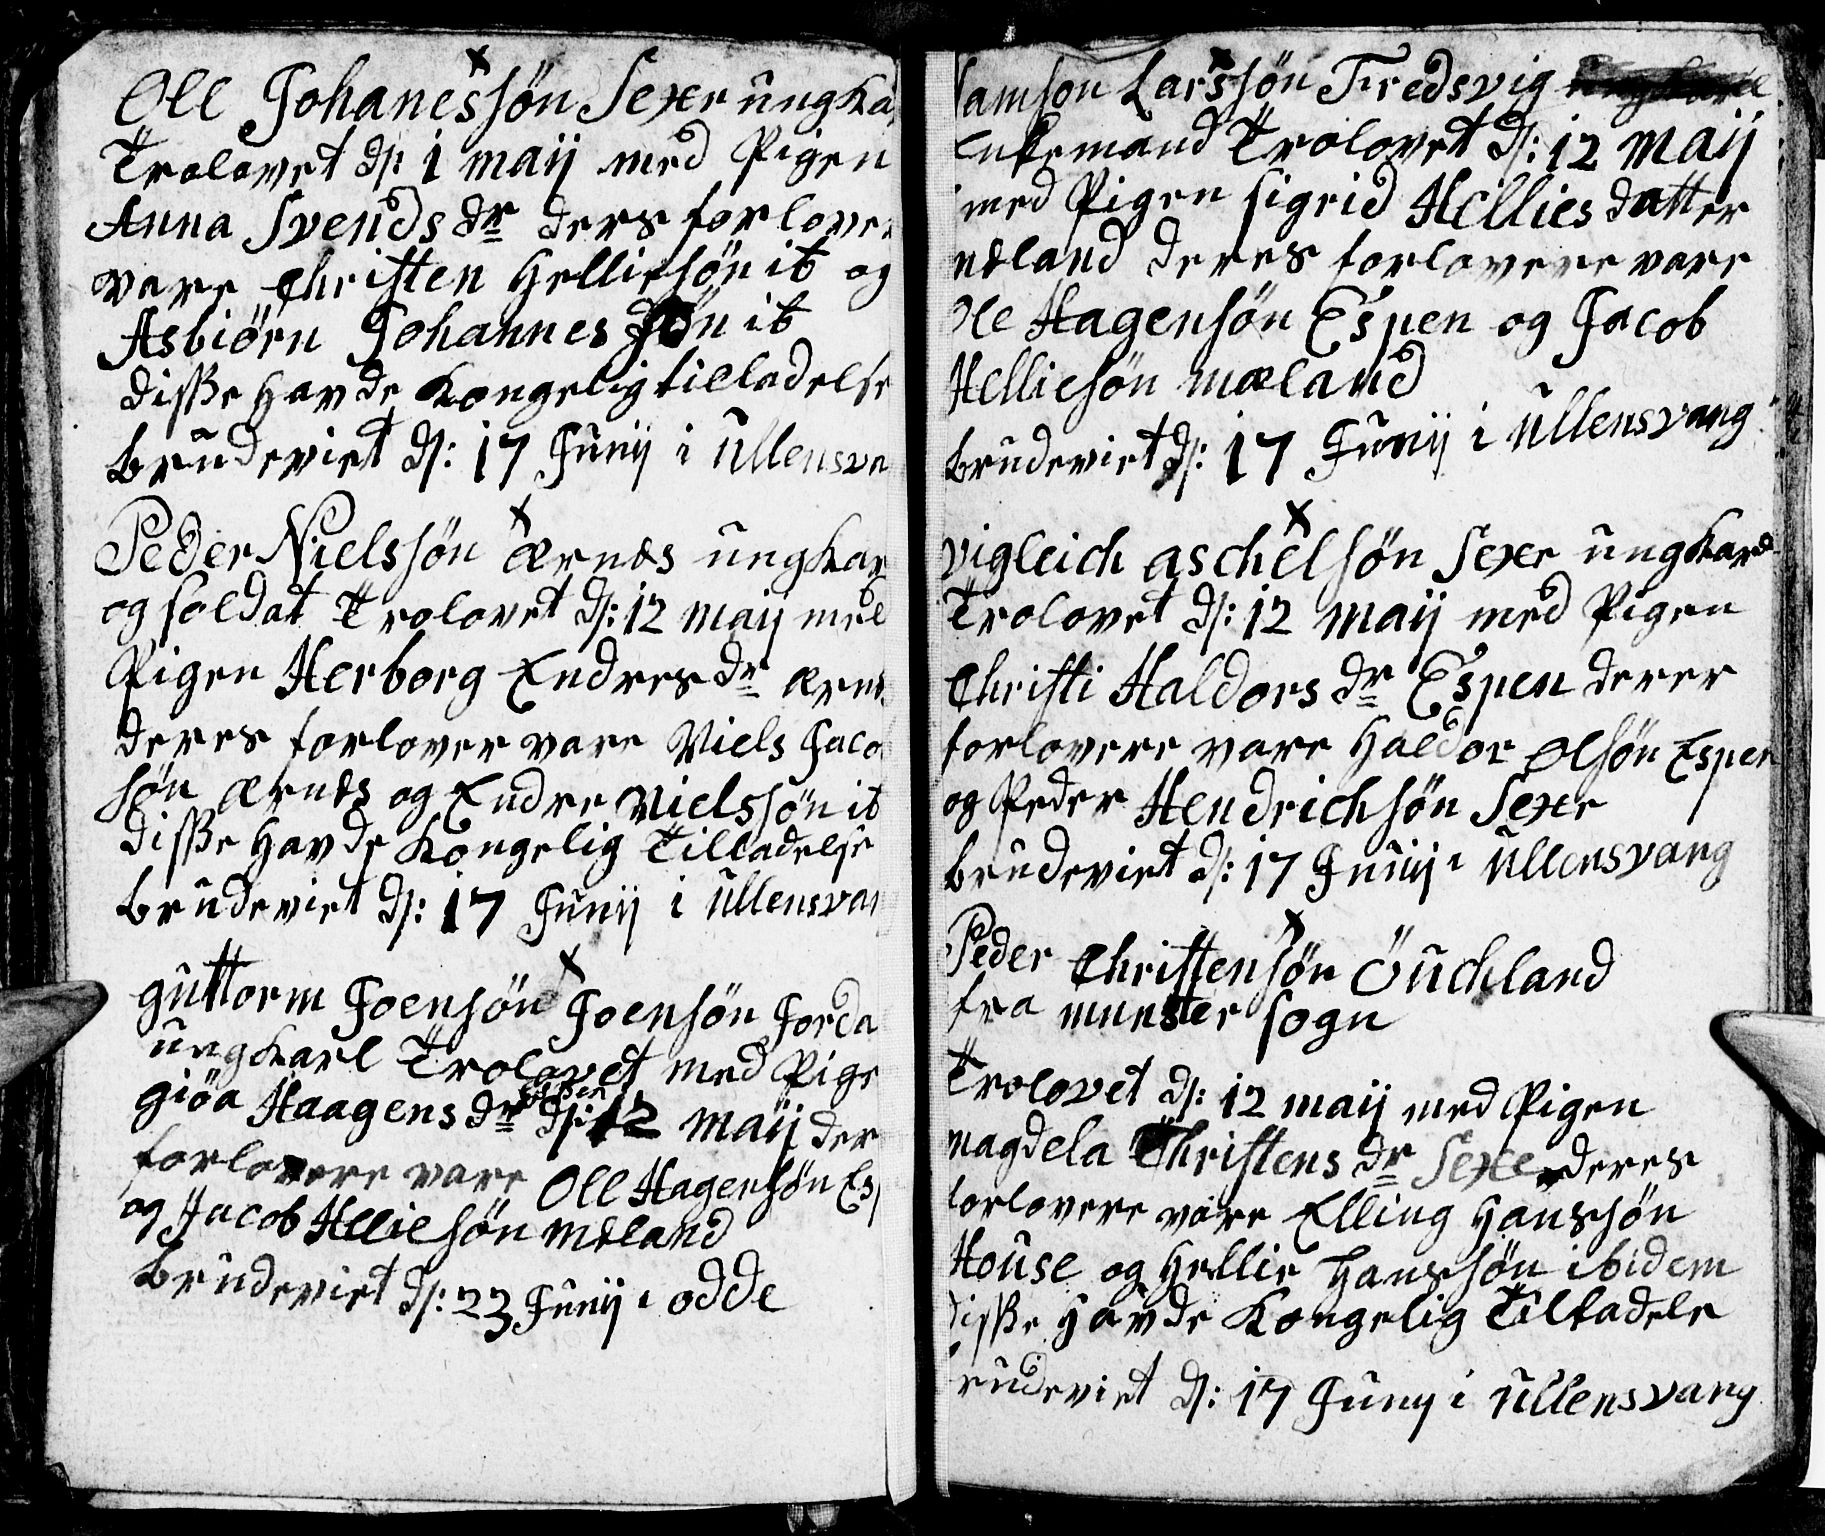 Ole Johanessøn Sexe ungka
Trolovet d: 1 maij med Pigen
Anna Svends dr ders forlover
vare Christen Helliesøn it og
Asbiørn Johannes søn it
disse havde Kongelig tilladelse
brudeviet d: 17 Junij i ullensva
Peder Nielssøn ærnes ungkar
og soldat Trolovet d: 12 maij med
Pigen Herborg Endres dr
deres forlover vare Niels Jaco
søn ærnes og Endre Nielssøn it
disse havde Kongelig Tilladelse
brudeviet d: 17 Junij i ullensvan
guttorm Joensøn Joensøn Jorda
ungkarl Trolovet med Pige
giöa Haagens dr Espen d: 12 maij der
forlovere vare Ole Hagensøn Esp
og Jacob Hellie søn mæland
brudeviet d: 23 Junij i odde
Samson Larssøn Tredsvig
Enkemand Trolovet d: 12 maij
med Pigen sigrid Hellies datter
mæland deres forlovere vare
Ole Hagensøn Espen og Jacob
Helliesøn mæland
brudeviet d: 17 Junij i ullensvang
vigleich aschelsøn Sexe ungkarl
Trolovet d: 12 maij med Pigen
Christi Haldors dr Espen derer
forlovere vare Haldor olsøn Espen
og Peder Hendrichsøn Sexe
brudeviet d: 17 Junij i ullensvang
Peder Christensøn Öuchland
fra munster sogn
Trolovet d: 12 maij med Pigen
magdela Christens dr Sexe deres
forlovere vare Elling Hanssøn
House og Hellie Hanssøn ibidem
disse havde Kongelig Tilladele
brudeviet d: 17 Junij i ullensvang